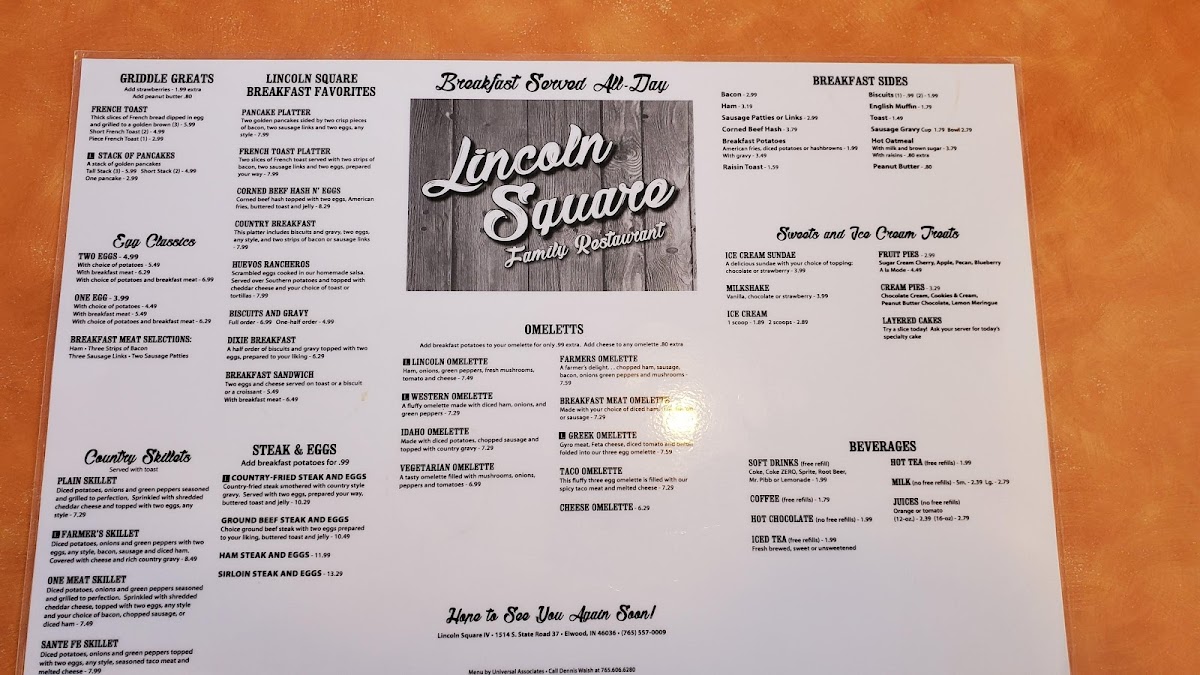 GRIDDLE GREATS
Add strawberries - 1.99 extra
Add peanut butter .80
FRENCH TOAST
Thick slices of French bread dipped in egg
and grilled to a golden brown (3) - 5.99
Short French Toast (2) - 4.99
Piece French Toast (1) - 2.99
L STACK OF PANCAKES
A stack of golden pancakes
Tall Stack (3) - 5.99 Short Stack (2) - 4.99
One pancake - 2.99
Egg Classics
TWO EGGS - 4.99
With choice of potatoes - 5.49
With breakfast meat - 6.29
With choice of potatoes and breakfast meat - 6.99
ONE EGG - 3.99
With choice of potatoes - 4.49
With breakfast meat - 5.49
With choice of potatoes and breakfast meat - 6.29
BREAKFAST MEAT SELECTIONS:
Ham • Three Strips of Bacon
Three Sausage Links • Two Sausage Patties
Country Skillets
Served with toast
PLAIN SKILLET
Diced potatoes, onions and green peppers seasoned
and grilled to perfection. Sprinkled with shredded
cheddar cheese and topped with two eggs, any
style - 7.29
L FARMER'S SKILLET
Diced potatoes, onions and green peppers with two
eggs, any style, bacon, sausage and diced ham.
Covered with cheese and rich country gravy - 8.49
ONE MEAT SKILLET
Diced potatoes, onions and green peppers seasoned
and grilled to perfection. Sprinkled with shredded
cheddar cheese, topped with two eggs, any style
and your choice of bacon, chopped sausage, or
diced ham - 7.49
SANTE FE SKILLET
Diced potatoes, onions and green peppers topped
with two eggs, any style, seasoned taco meat and
melted cheese - 7.99
LINCOLN SQUARE
BREAKFAST FAVORITES
PANCAKE PLATTER
Two golden pancakes sided by two crisp pieces
of bacon, two sausage links and two eggs, any
style - 7.99
FRENCH TOAST PLATTER
Two slices of French toast served with two strips of
bacon, two sausage links and two eggs, prepared
your way - 7.99
CORNED BEEF HASH N' EGGS
Corned beef hash topped with two eggs, American
fries, buttered toast and jelly - 8.29
COUNTRY BREAKFAST
This platter includes biscuits and gravy, two eggs,
any style, and two strips of bacon or sausage links
- 7.99
HUEVOS RANCHEROS
Scrambled eggs cooked in our homemade salsa.
Served over Southern potatoes and topped with
cheddar cheese and your choice of toast or
tortillas - 7.99
BISCUITS AND GRAVY
Full order - 6.99 One-half order - 4.99
DIXIE BREAKFAST
A half order of biscuits and gravy topped with two
eggs, prepared to your liking - 6.29
BREAKFAST SANDWICH
Two eggs and cheese served on toast or a biscuit
or a croissant - 5.49
With breakfast meat - 6.49
STEAK & EGGS
Add breakfast potatoes for .99
L COUNTRY-FRIED STEAK AND EGGS
Country-fried steak smothered with country style
gravy. Served with two eggs, prepared your way,
buttered toast and jelly - 10.29
GROUND BEEF STEAK AND EGGS
Choice ground beef steak with two eggs prepared
to your liking, buttered toast and jelly - 10.49
HAM STEAK AND EGGS - 11.99
SIRLOIN STEAK AND EGGS - 13.29
Breakfast Served All-Day
Lincoln
Square
Family Restaurant
OMELETTS
Add breakfast potatoes to your omelette for only .99 extra. Add cheese to any omelette .80 extra
L LINCOLN OMELETTE
Ham, onions, green peppers, fresh mushrooms,
tomato and cheese - 7.49
L WESTERN OMELETTE
A fluffy omelette made with diced ham, onions, and
green peppers - 7.29
IDAHO OMELETTE
Made with diced potatoes, chopped sausage and
topped with country gravy - 7.29
VEGETARIAN OMELETTE
A tasty omelette filled with mushrooms, onions,
peppers and tomatoes - 6.99
FARMERS OMELETTE
A farmer's delight. . . chopped ham, sausage,
bacon, onions green peppers and mushrooms -
7.59
BREAKFAST MEAT OMELETTE
Made with your choice of diced ham,
or sausage - 7.29
L GREEK OMELETTE
Gyro meat, Feta cheese, diced tomato and
folded into our three egg omelette - 7.59
TACO OMELETTE
This fluffy three egg omelette is filled with our
spicy taco meat and melted cheese - 7.29
CHEESE OMELETTE - 6.29
Hope to See You Again Soon!
Lincoln Square IV • 1514 S. State Road 37 • Elwood, IN 46036 • (765) 557-0009
Menu by Universal Associates • Call Dennis Walsh at 765.606.6280
BREAKFAST SIDES
Bacon - 2.99
Ham - 3.19
Sausage Patties or Links - 2.99
Corned Beef Hash - 3.79
Breakfast Potatoes
American fries, diced potatoes or hashbrowns - 1.99
With gravy - 3.49
Raisin Toast - 1.59
Biscuits (1) - .99 (2) - 1.99
English Muffin - 1.79
Toast - 1.49
Sausage Gravy Cup 1.79 Bowl 2.79
Hot Oatmeal
With milk and brown sugar - 3.79
With raisins - .80 extra
Peanut Butter - .80
Sweets and Ice Cream Treats
ICE CREAM SUNDAE
A delicious sundae with your choice of topping:
chocolate or strawberry - 3.99
MILKSHAKE
Vanilla, chocolate or strawberry - 3.99
ICE CREAM
1 scoop - 1.89 2 scoops - 2.89
FRUIT PIES - 2.99
Sugar Cream Cherry, Apple, Pecan, Blueberry
A la Mode - 4.49
CREAM PIES - 3.29
Chocolate Cream, Cookies & Cream,
Peanut Butter Chocolate, Lemon Meringue
LAYERED CAKES
Try a slice today! Ask your server for today's
specialty cake
BEVERAGES
SOFT DRINKS (free refill)
Coke, Coke ZERO, Sprite, Root Beer,
Mr. Pibb or Lemonade - 1.99
COFFEE (free refills) - 1.79
HOT CHOCOLATE (no free refills) - 1.99
ICED TEA (free refills) - 1.99
Fresh brewed, sweet or unsweetened
HOT TEA (free refill) - 1.99
MILK (no free refill) - Sm. - 2.39 Lg. - 2.79
JUICES (no free refill)
Orange or tomato
(12-oz.) - 2.39 (16-oz) - 2.79